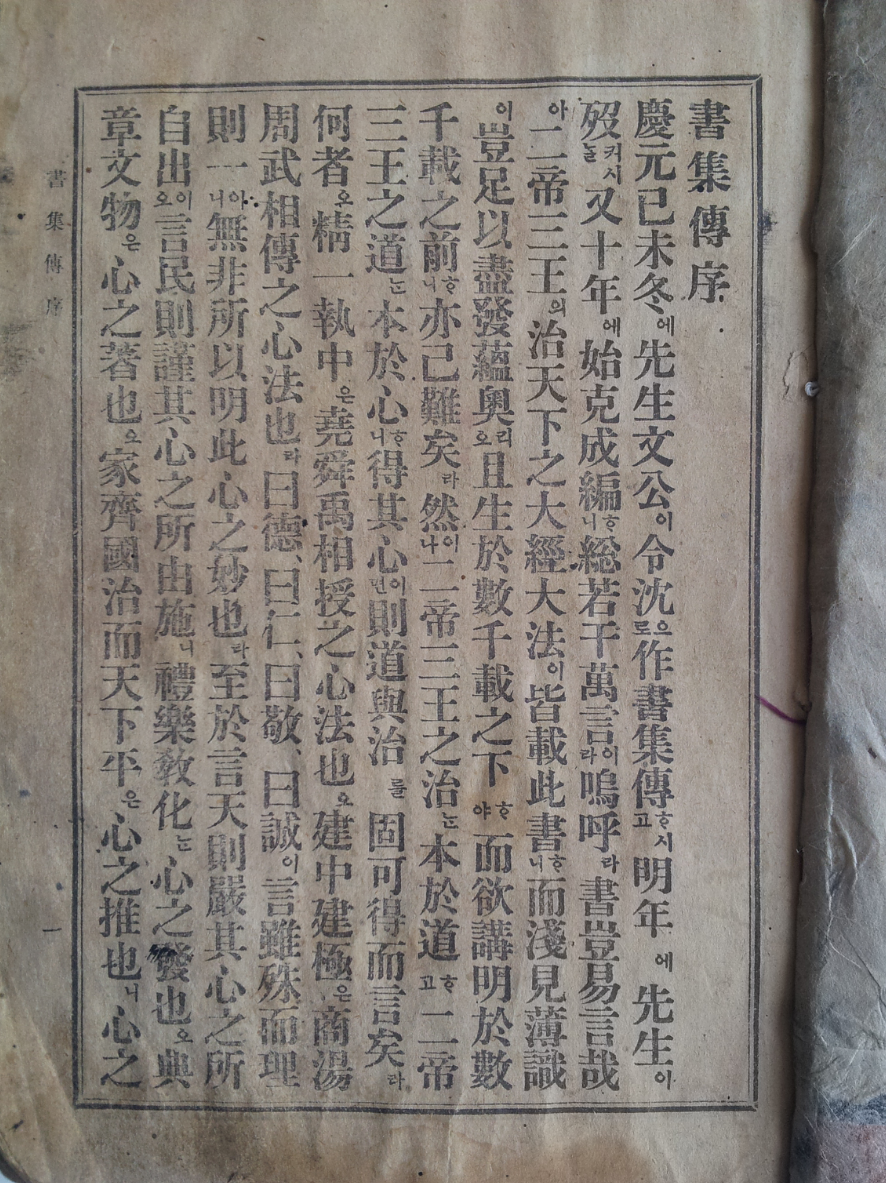 書集傳序
慶元已未冬에先生文公이令沈으로作書集傳ᄒᆞ시고明年에先生이
歿커시ᄂᆞᆯ又十年에始克成編ᄒᆞ니總若干萬言이라嗚呼라書豈易言哉
아二帝三王의治天下之大經大法이皆載此書ᄒᆞ니而淺見薄識
이豈足以盡發蘊奧리오且生於數千載之下ᄒᆞ야而欲講明於數
千載之前ᄒᆞ니亦已難矣라然이나二帝三王之治ᄂᆞᆫ本於道ᄒᆞ고二帝
三王之道ᄂᆞᆫ本於心ᄒᆞ니得其心이면則道與治를固可得而言矣라
何者오精一執中은堯舜禹相授之心法也오建中建極은商湯
周武相傳之心法也라曰德、曰仁、曰敬、曰誠이言雖殊而理
則一아니無非所以明此心之妙也라至於言天則嚴其心之所
自出이오言民則謹其心之所由施니禮樂敎化ᄂᆞᆫ心之發也오典
章文物은心之著也오家齊國治而天下平은心之推也니心之
書集傳序
一